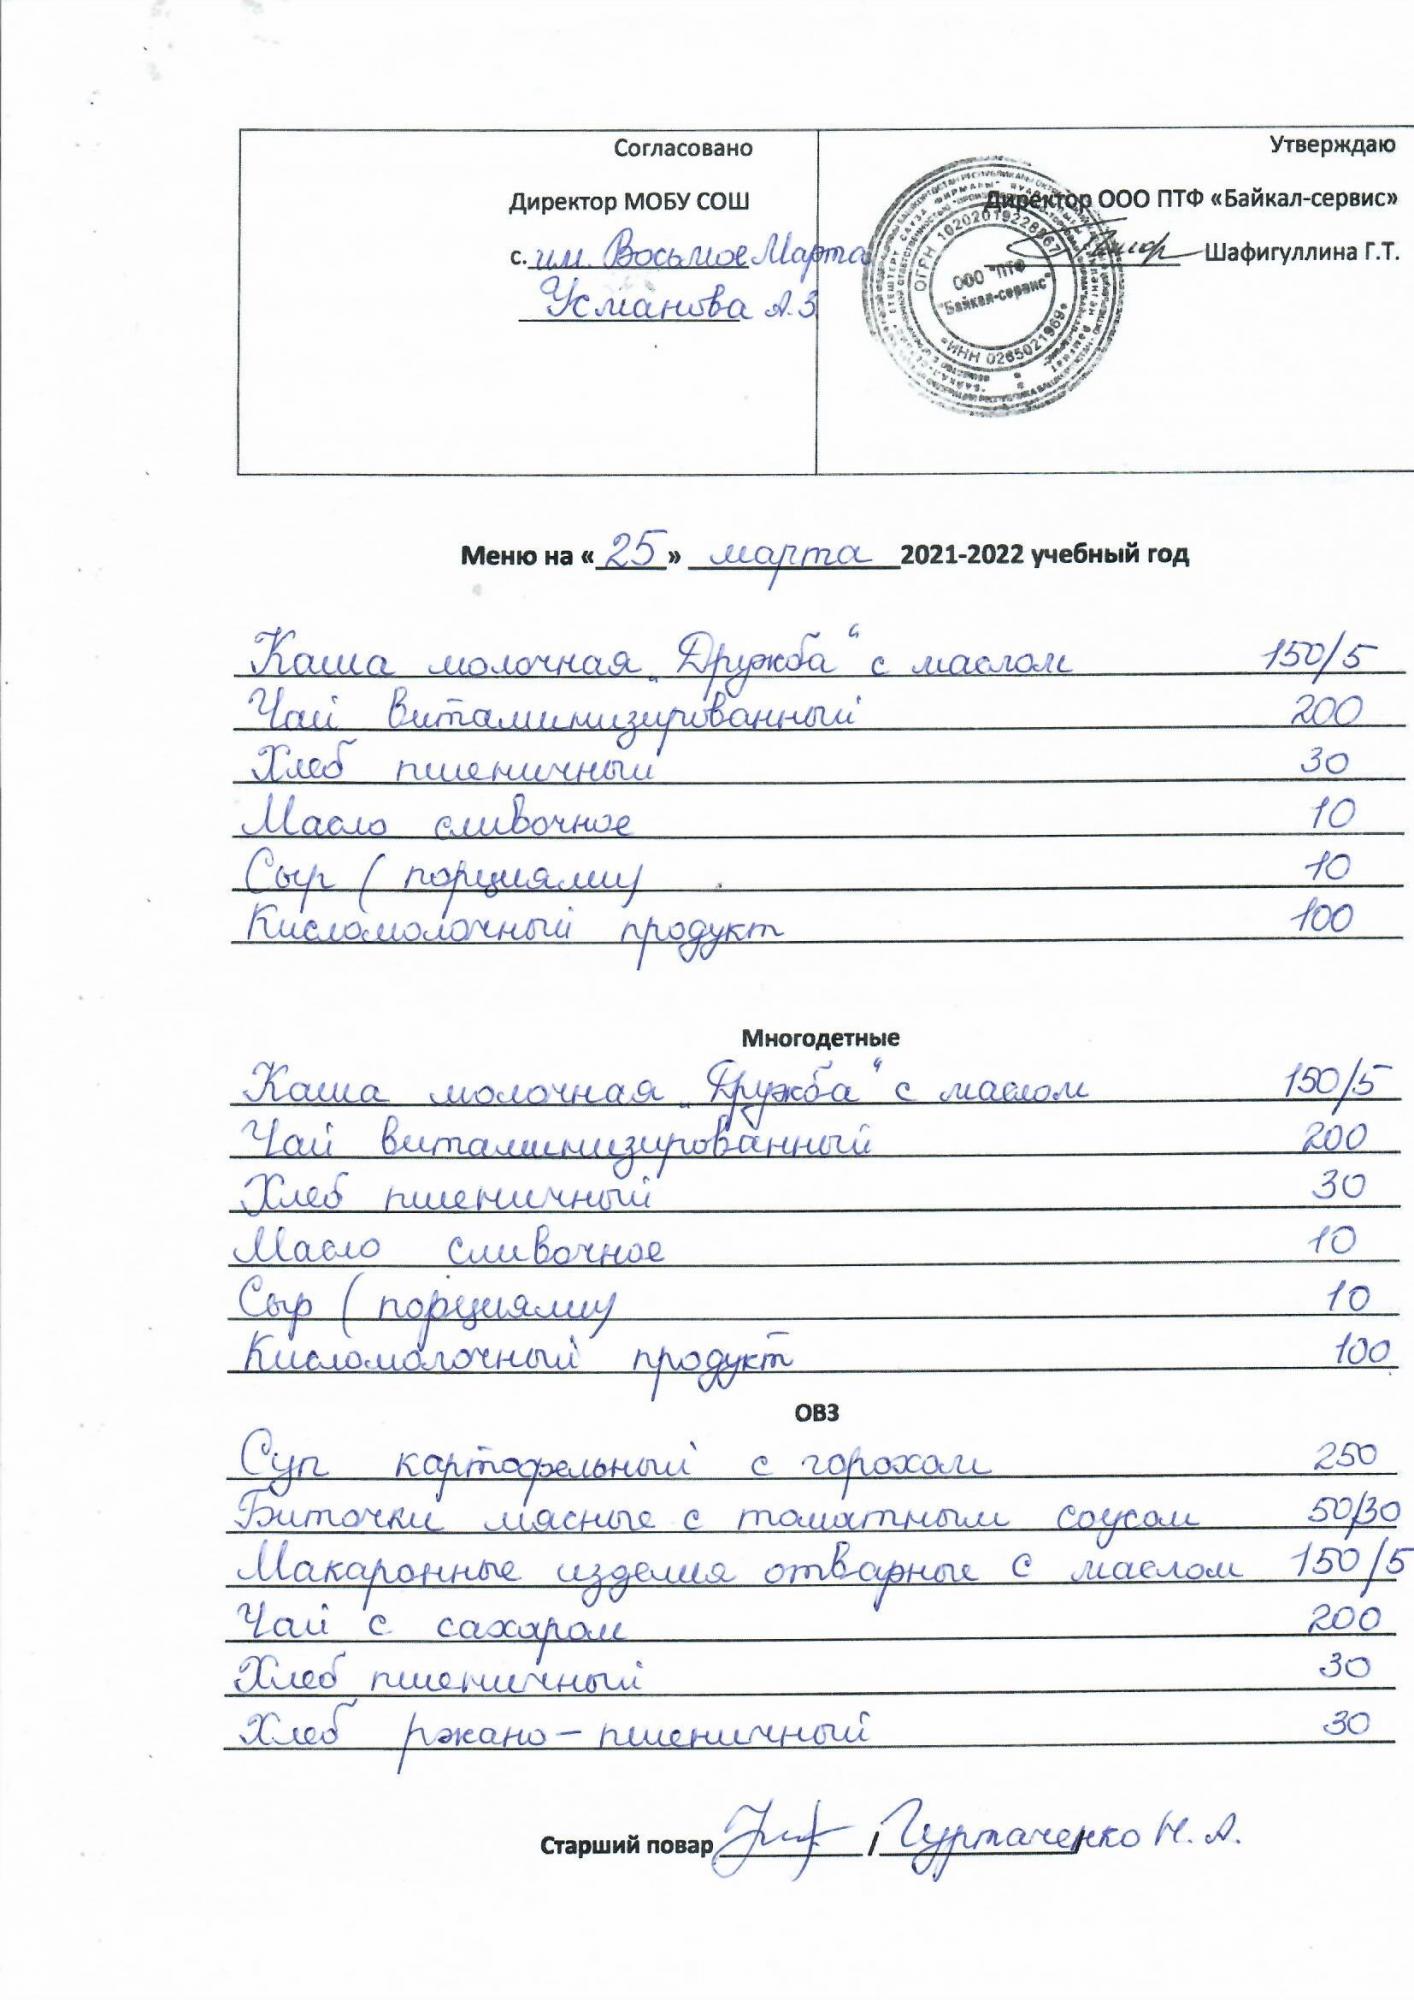 Согласовано
Директор МОБУ СОШ
с. им. Восьмое Марта
Усманова А.З
Утверждаю
Директор ООО ПТФ «Байкал-сервис»
Шафигуллина Г.Т.
ОГРН 1020201922896
ООО "ПТФ
"Байкал-сервис"
*ИНН 0265021969*
Меню на «25» марта 2021-2022 учебный год
Каша молочная „Дружба“ с маслом 150/5
Чай витаминизированный 200
Хлеб пшеничный 30
Масло сливочное 10
Сыр (порциями) 10
Кисломолочный продукт 100
Многодетные
Каша молочная „Дружба“ с маслом 150/5
Чай витаминизированный 200
Хлеб пшеничный 30
Масло сливочное 10
Сыр (порциями) 10
Кисломолочный продукт 100
ОВЗ
Суп картофельный с горохом 250
Биточки мясные с томатным соусом 50/30
Макаронные изделия отварные с маслом 150/5
Чай с сахаром 200
Хлеб пшеничный 30
Хлеб ржано-пшеничный 30
Старший повар / Гуртаченко Н.А. /